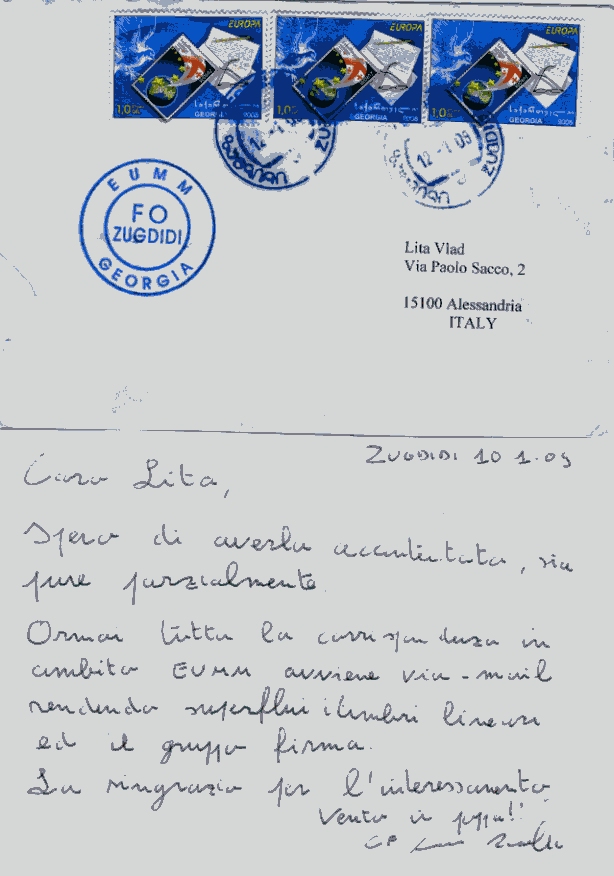 EUROPA EUROPA EUROPA
1,00 GEORGIA 2008 1,00 GEORGIA 2008 1,00 GEORGIA 2008
12-1 09 12-1 09
ZUGDIDI
EUMM
FO
ZUGDIDI
GEORGIA
Lita Vlad
Via Paolo Sacco, 2
15100 Alessandria
ITALY
ZUGDIDI 10 1.09
Cara Lita,
Spero di averla accontentata, sia
pure parzialmente.
Ormai tutta la corrispondenza in
ambito EUMM avviene via-mail
rendendo superflui i timbri lineari
ed il gruppo firma.
La ringrazio per l'interessamento
Vento in poppa!!